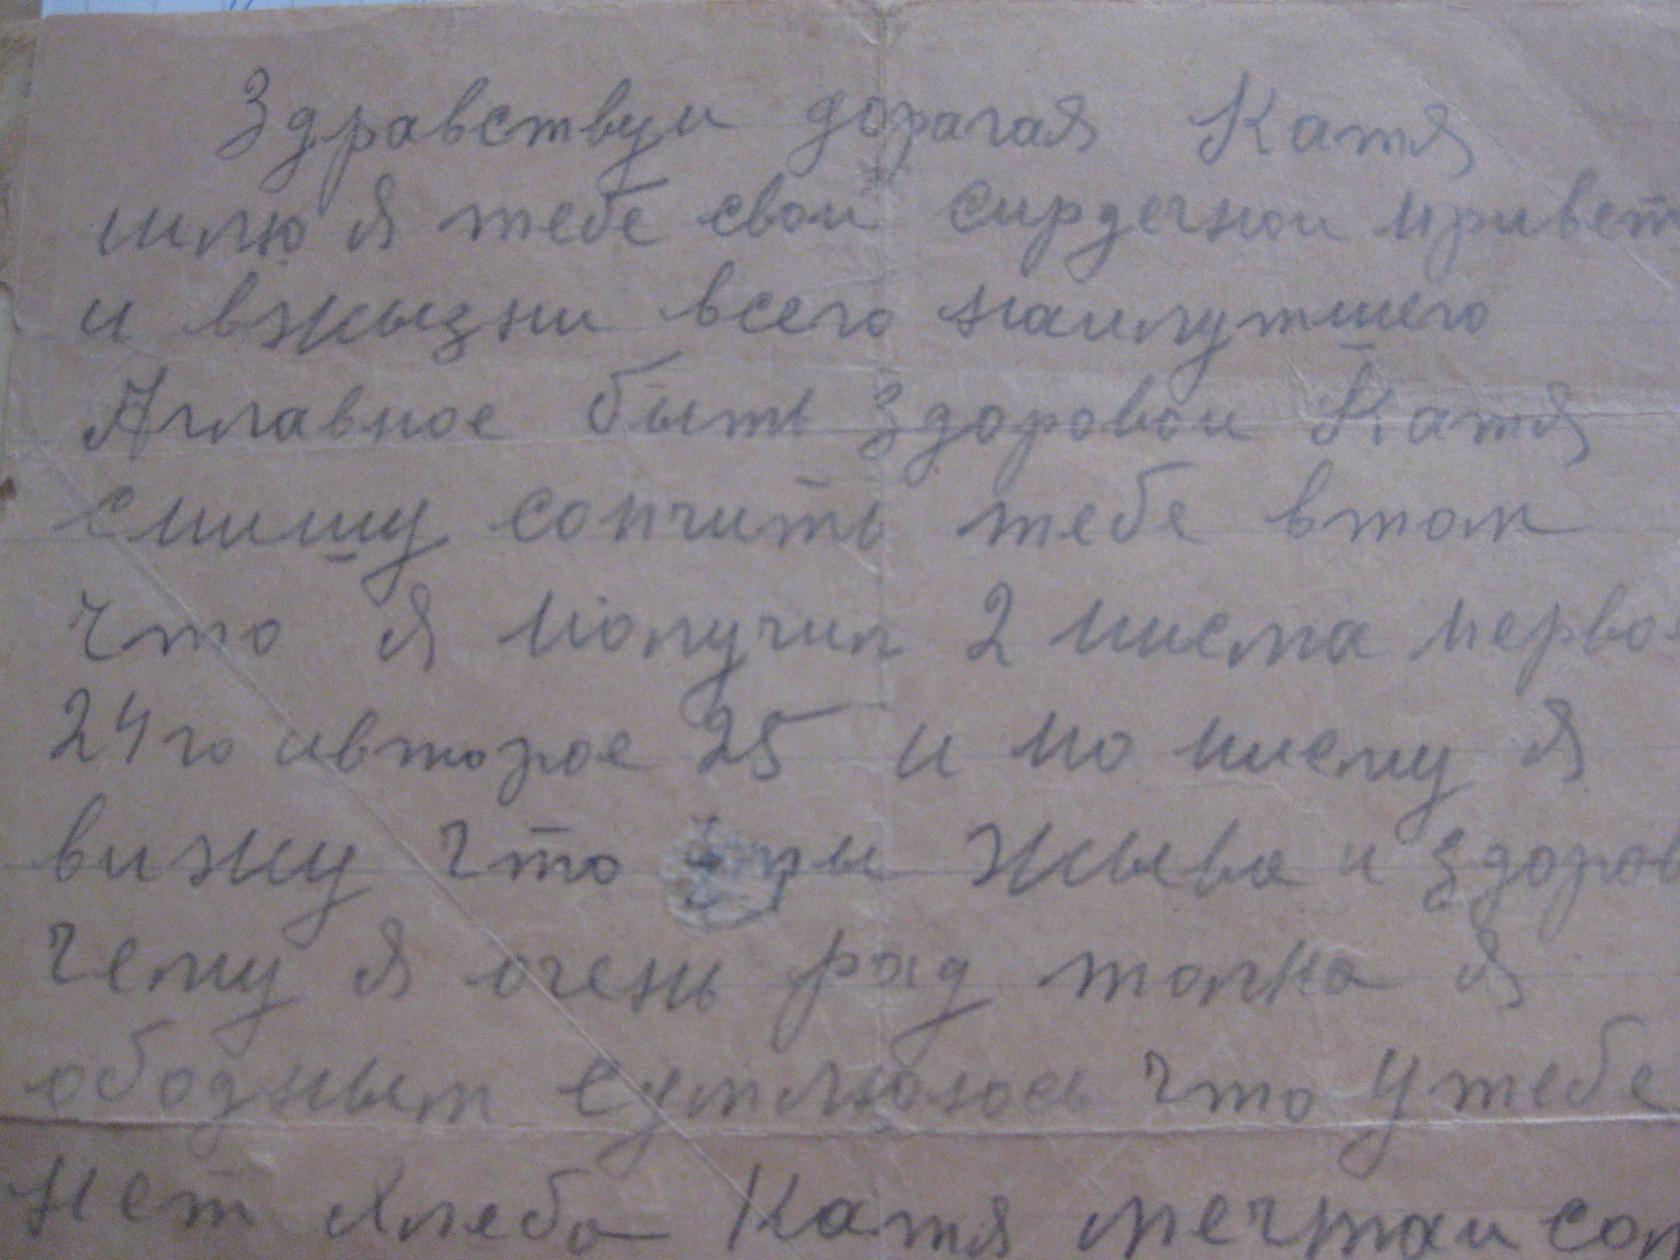 Здравствуи дорагая Катя
шлю я тебе свои сирдечнои привет
и вжызни всего наилутшего
Аглавное быть здоровои Катя
спишу сопчить тебе втом
что я получил 2 писма перво
24го ивторое 25 и по писму я
вижу что ты жыва и здоров
чему я очень рад толка я
ободным сумлюваюсь что у тебе
нет хлеба Катя мечтаи